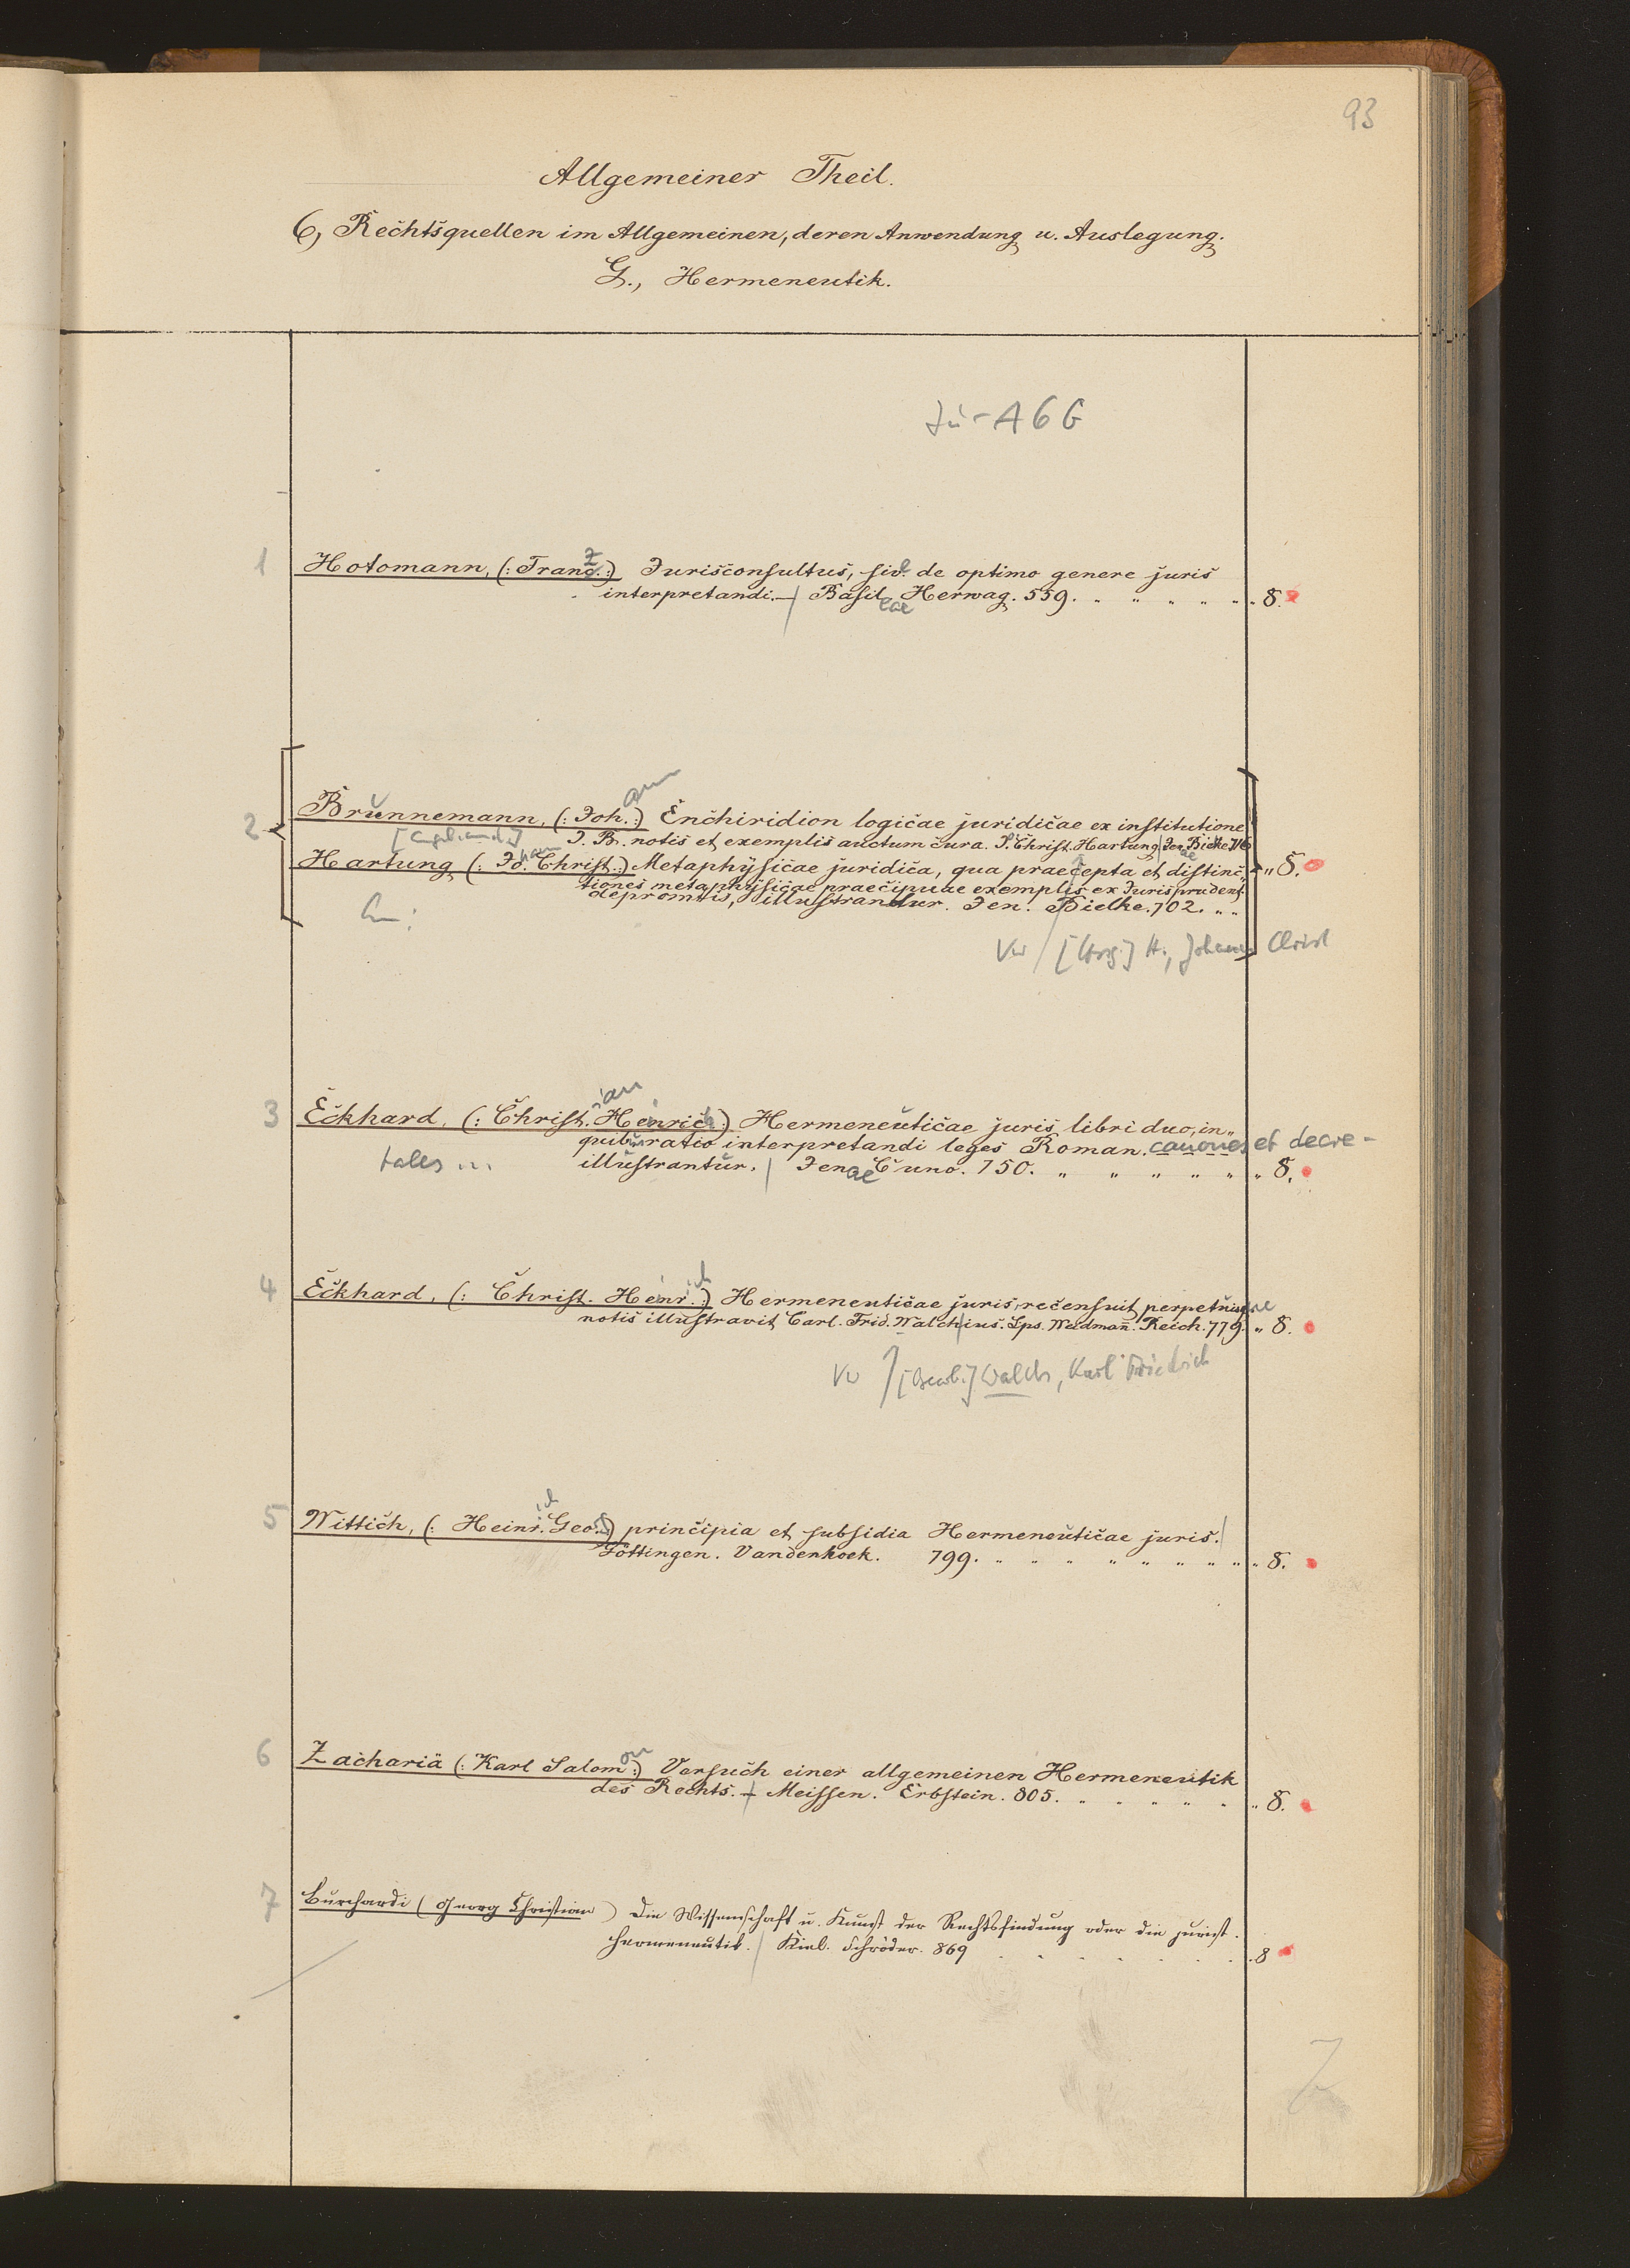 93
Allgemeiner Theil.
6, Rechtsquellen im Allgemeinen, deren Anwendung u. Auslegung.
G., Hermeneutik.
Ju - A 6 G
1 Hotomann, (: Franc. :) Jurisconsultus, sive de optimo genere juris
interpretandi. — Basileae Herwag. 559. „ „ „ „ „ „ 8.
2 Brunnemann, (: Johann :) Enchiridion logicae juridicae ex institutione
J. B. notis et exemplis auctum cura. J. Christ. Hartung Jenae Bielke
Hartung (: Johann Christ. :) Metaphysicae juridica, qua praecepta et distinc„
tiones metaphysicae praecipuae exemplis ex Jurisprudent.
depromtis, illustrantur. Jen. Bielke. 702. „ „ „ 8.
Vw / [Hrsg.] H., Johann Christ
3 Eckhard, (: Christian Heinrich :) Hermeneuticae juris libri duo, in„
quibus ratio interpretandi leges Roman. canones et decre-
tales ... illustrantur. Jenae Cuno. 750. „ „ „ „ „ „ 8.
4 Eckhard, (: Christ. Heinrich :) Hermeneuticae juris, recensuit perpetuisque
notis illustravit Carl. Frid. Walchius. Lps. Weidmañ. Reich. 779. „ 8.
Vw / [Bearb.] Walch, Karl Friedrich
5 Wittich, (: Heinrich Geo. :) principia et subsidia Hermeneuticae juris.
Göttingen. Vandenhoek. 799. „ „ „ „ „ „ „ „ 8.
6 Zachariä (: Karl Salomon :) Versuch einer allgemeinen Hermeneutik
des Rechts. — Meissen. Erbstein. 805. „ „ „ „ „ „ 8.
7 Burchardi (Georg Christian) Die Wissenschaft u. Kunst der Rechtsfindung oder die jurist.
Hermeneutik. Kiel. Schröder. 869 . . . . . . . 8
7